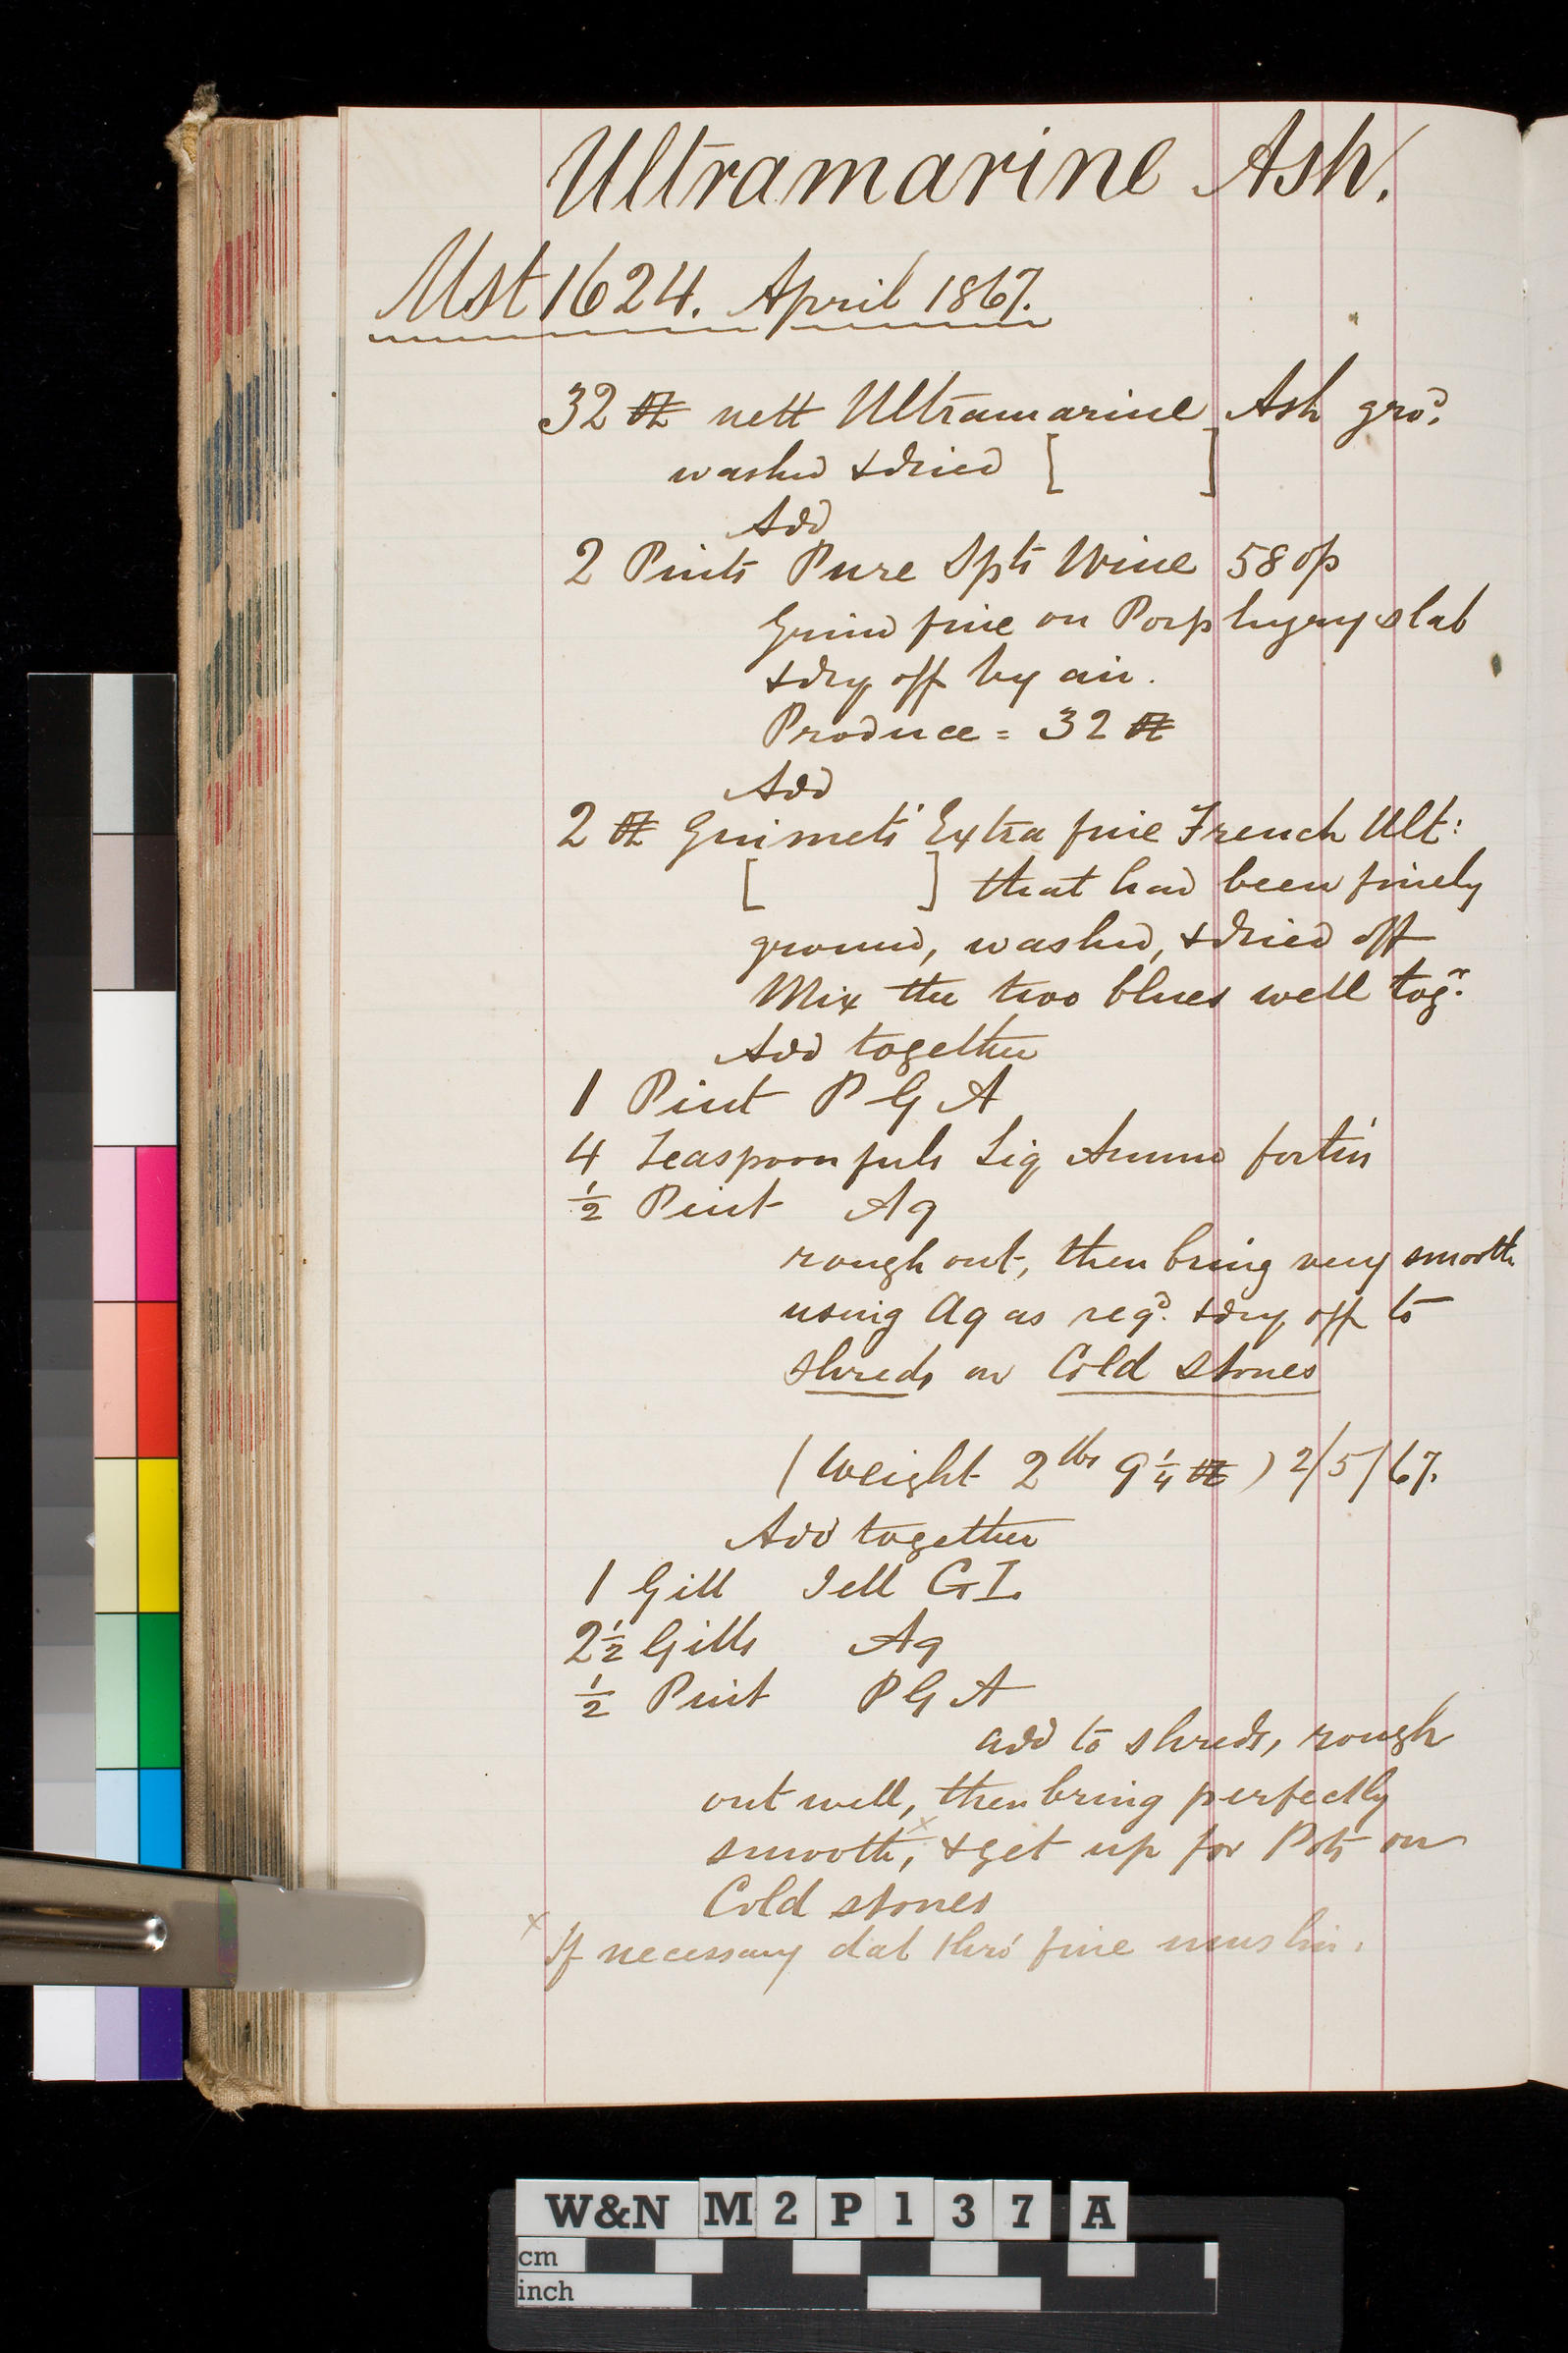 Ultramarine Ash.
Mst 1624. April 1867.
32 oz nett Ultramarine Ash gro.d
washed & dried [ ]
Add
2 Pints Pure Spts Wine 58 op
Grind fine on Porphyry slab
& dry off by air.
Produce = 32 oz
Add
2 oz Guimets' Extra fine French Ult:
[ ] that had been finely
ground, washed, & dried off
Mix the two blues well tog.r
Add together
1 Pint P G A
4 Teaspoonfuls Liq Ammo fortis
½ Pint Aq
rough out, then bring very smooth
using Aq as req.d & dry off to
shreds on Cold stones
(Weight 2 lbs 9¼ oz) 2/5/67.
Add together
1 Gill Jell G I.
2½ Gills Aq
½ Pint P G A
add to shreds, rough
out well, then bring perfectly
smooth,x & get up for Pots on
Cold stones
x If necessary dab thro' fine muslin.
W&N M2P137A
cm
inch